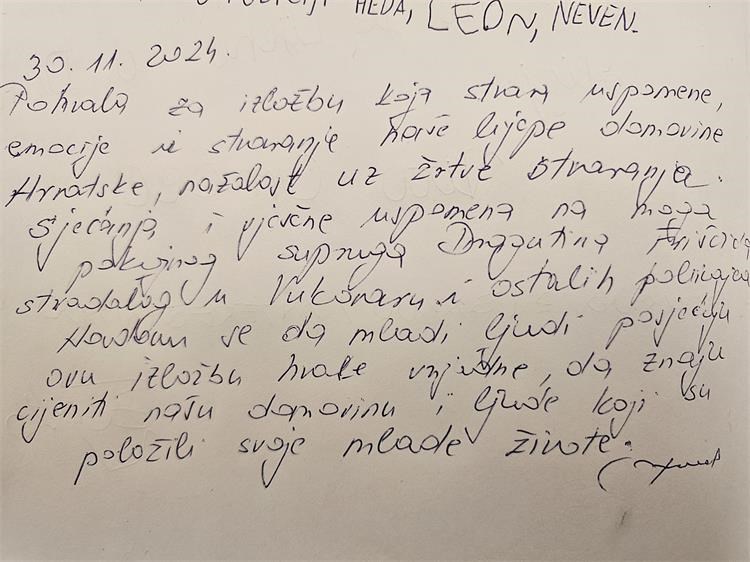 HEDA, LEON, NEVEN.
30. 11. 2024.
Pohvala za izložbu koja stvara uspomene,
emocije i stvaranje naše lijepe domovine
Hrvatske, nažalost uz žrtve stvaranja.
Sjećanja i vječne uspomena na moga
pokojnog supruga Dragutina
stradalog u Vukovaru i ostalih policajca
Nadam se da mladi ljudi posjećuju
ovu izložbu hvale vrijedne, da znaju
cijeniti našu domovinu i ljude koji su
položili svoje mlade živote.